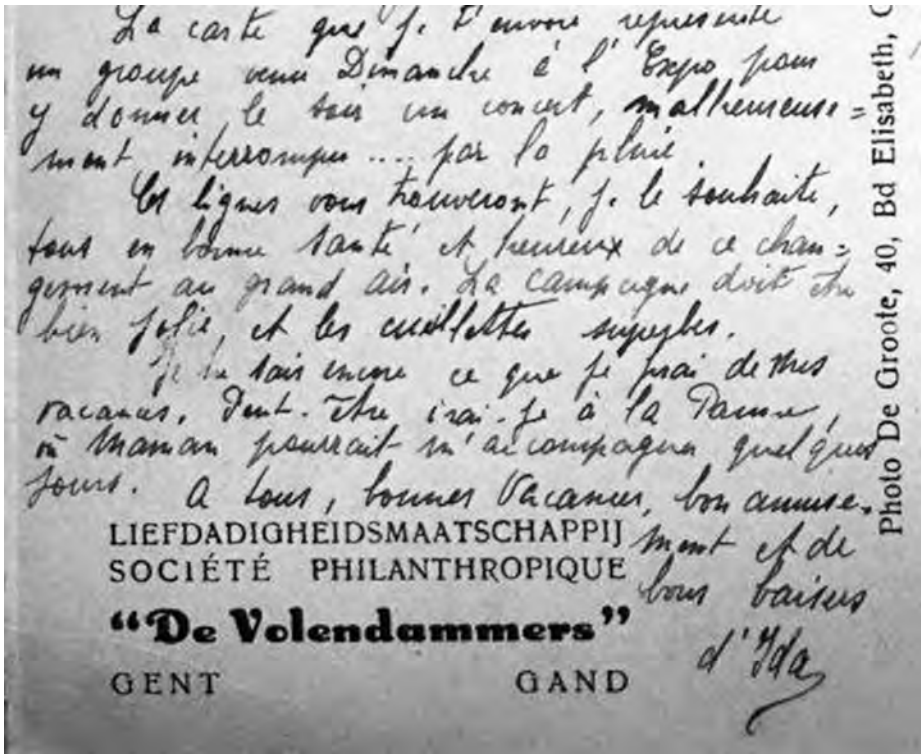 La carte que je t'envoie représente
un groupe venu Dimanche à l'Expo pour
y donner le soir un concert, malheureuse=
ment interrompu .... par la pluie.
Ces lignes vous trouveront, je le souhaite,
tous en bonne santé et heureux de ce chan=
gement au grand air. La campagne doit être
bien jolie, et les cueillettes superbes.
Je ne sais encore ce que je ferai de mes
vacances. Peut-être irai-je à la Panne,
où Maman pourrait m'accompagner quelques
jours. A tous, bonnes Vacances, bon amuse-
ment et de
bons baisers
d'Ida
LIEFDADIGHEIDSMAATSCHAPPIJ
SOCIÉTÉ PHILANTHROPIQUE
"De Volendammers"
GENT GAND
Photo De Groote, 40, Bd Elisabeth,